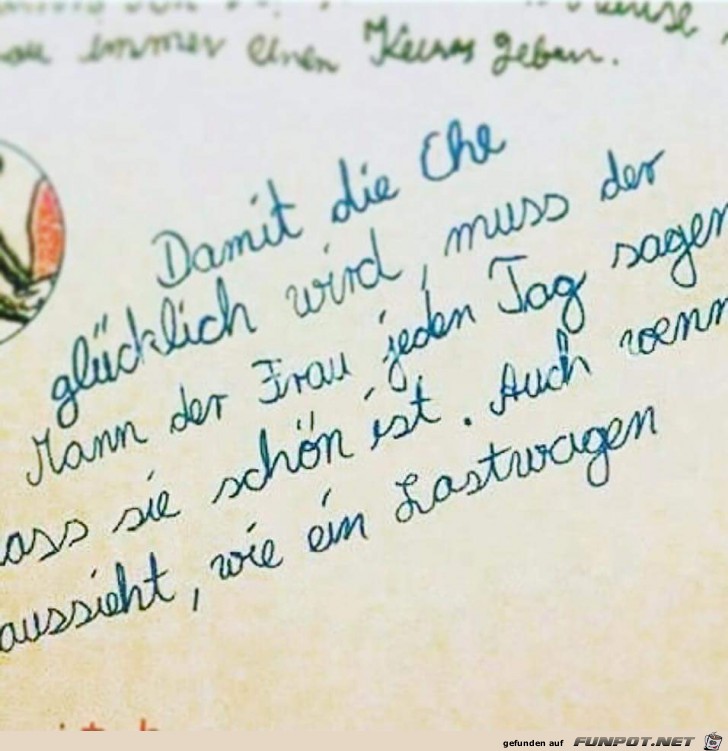 immer einen Kuss geben.
Damit die Ehe
glücklich wird, muss der
Mann der Frau jeden Tag sagen
dass sie schön ist. Auch wenn
aussieht, wie ein Lastwagen
gefunden auf FUNPOT.NET